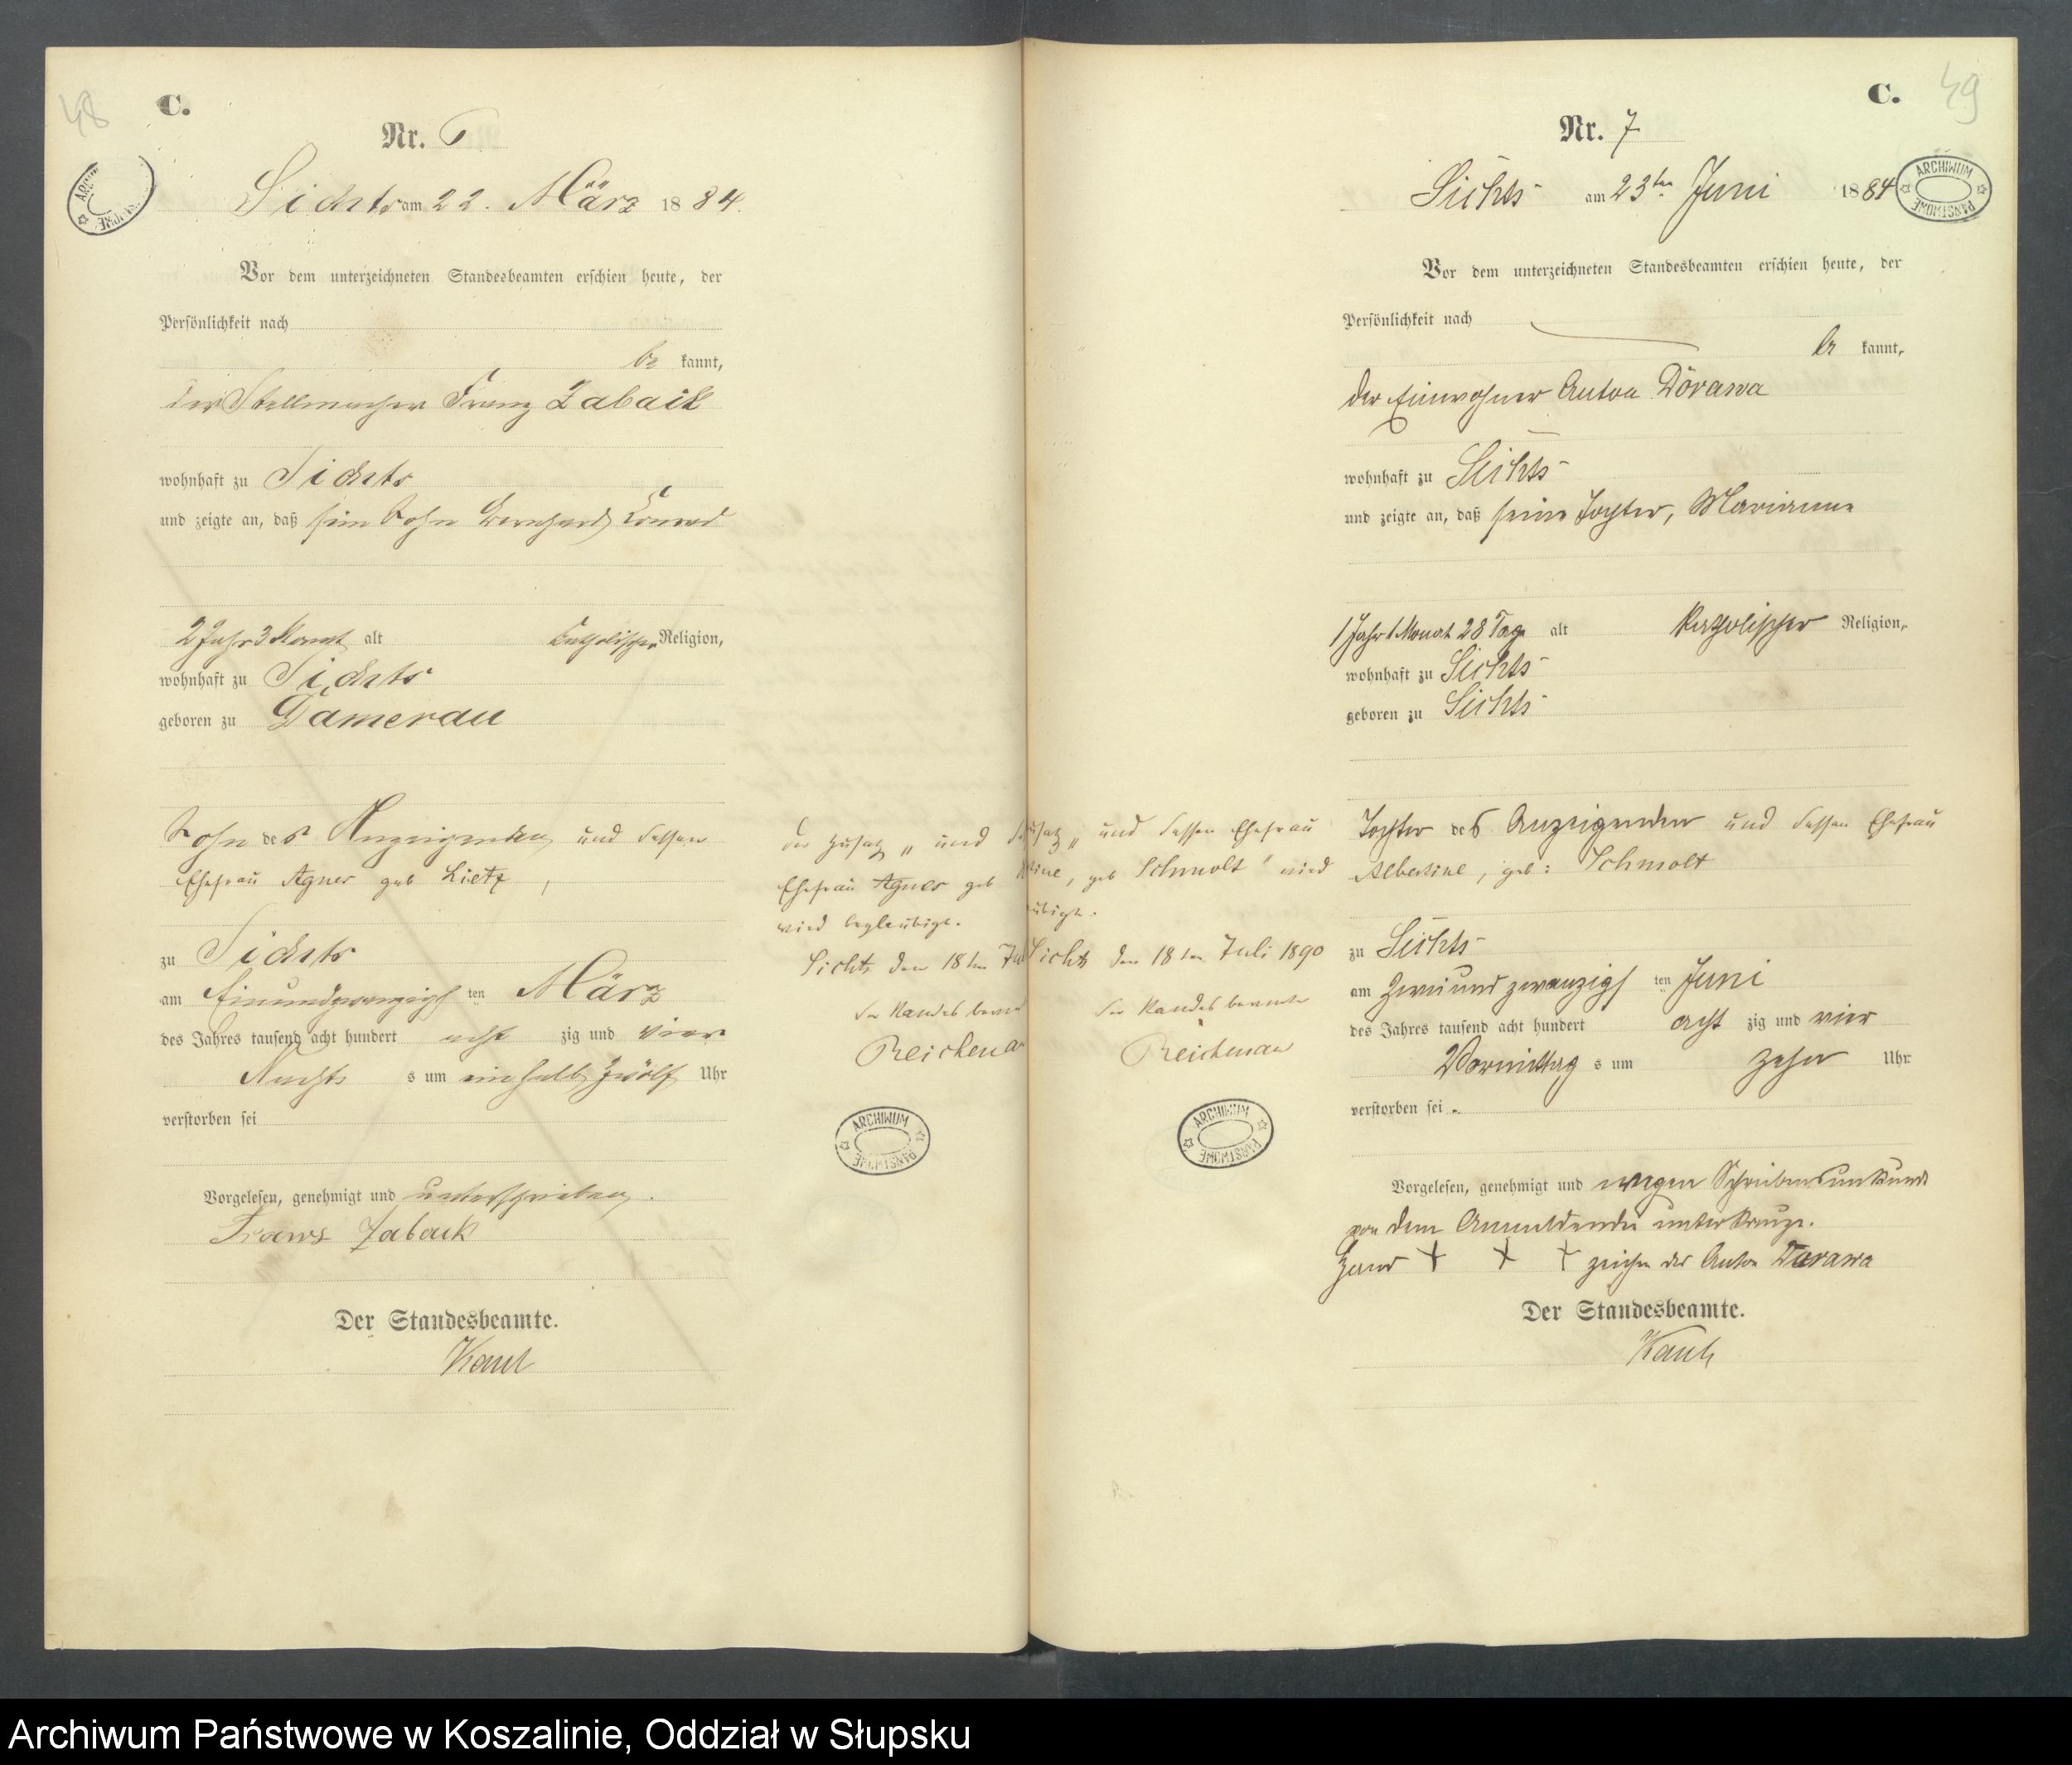 48
C.
Nr. 6
Sichts am 22. März 1884.
Vor dem unterzeichneten Standesbeamten erschien heute, der
Persönlichkeit nach
be kannt,
der Stellmacher Franz Zabaik
wohnhaft zu Sichts
und zeigte an, daß sein Sohn Bernhard Konrad
2 Jahr 3 Monat alt katholischer Religion,
wohnhaft zu Sichts
geboren zu Damerau
Sohn des Anzeigenden und dessen
Ehefrau Agnes geb Lietz,
zu Sichts
am Einundzwanzigsten März
des Jahres tausend acht hundert acht zig und vier
Nachts um ein halb zwölf Uhr
verstorben sei
Vorgelesen, genehmigt und unterschrieben.
Franz Zabaik
Der Standesbeamte.
Der Zusatz „ und
Ehefrau Agnes geb
wird beglaubigt.
Sichts den 18ten Jul
Der Standesbeam
Reichena
ARCHIWUM PAŃSTWOWE
49
C.
Nr. 7
Sichts am 23ten Juni 1884
ARCHIWUM PAŃSTWOWE
Vor dem unterzeichneten Standesbeamten erschien heute, der
Persönlichkeit nach
be kannt,
der Einwohner Anton Dorawa
wohnhaft zu Sichts
und zeigte an, daß seine Tochter, Marianne
1 Jahr 1 Monat 28 Tage alt katholischer Religion,
wohnhaft zu Sichts
geboren zu Sichts
Tochter des Anzeigenden und dessen Ehefrau
Albertine, geb: Schmolt
zu Sichts
am Zweiundzwanzigsten Juni
des Jahres tausend acht hundert acht zig und vier
Vormittags um zehn Uhr
verstorben sei.
Vorgelesen, genehmigt und wegen Schreibensunkunde
von dem Anmeldenden unterkreuzt.
Hand + + + zeichen des Anton Dorawa
Der Standesbeamte.
usatz „ und dessen Ehefrau
tine, geb Schmolt" wird
ubigt.
Sichts den 18ten Juli 1890
Der Standesbeamte
Reichenau
ARCHIWUM PAŃSTWOWE
Archiwum Państwowe w Koszalinie, Oddział w Słupsku